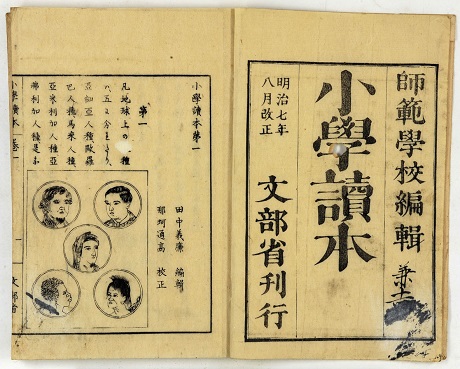 師範學校編輯
小學讀本
明治七年
八月改正
文部省刊行
小學讀本第一
田中義廉 編輯
那珂通高 校正
第一
凡地球上の 種
亞細亞人種歐羅
巴人種馬來人種
亞米利加人種亞
弗利加人種是な
小學讀本 卷一
一
文部省